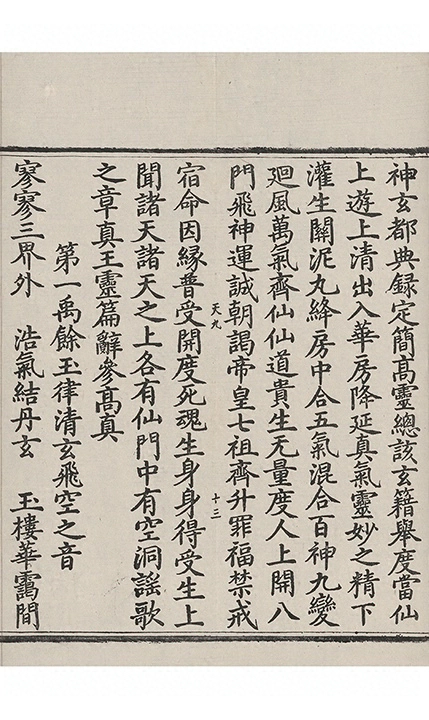 神玄都典録定簡髙靈總該玄籍舉度當仙
上遊上清出入華房降延真氣靈妙之精下
灌生關泥丸絳房中合五氣混合百神九變
廻風萬氣齊仙仙道貴生无量度人上開八
門飛神運誠朝謁帝皇七祖齊升罪福禁戒
天九 十三
宿命因縁普受開度死魂生身身得受生上
聞諸天諸天之上各有仙門中有空洞謡歌
之章真王靈篇辭參髙真
第一禹餘玉律清玄飛空之音
寥寥三界外 浩氣結丹玄 玉樓華靄間